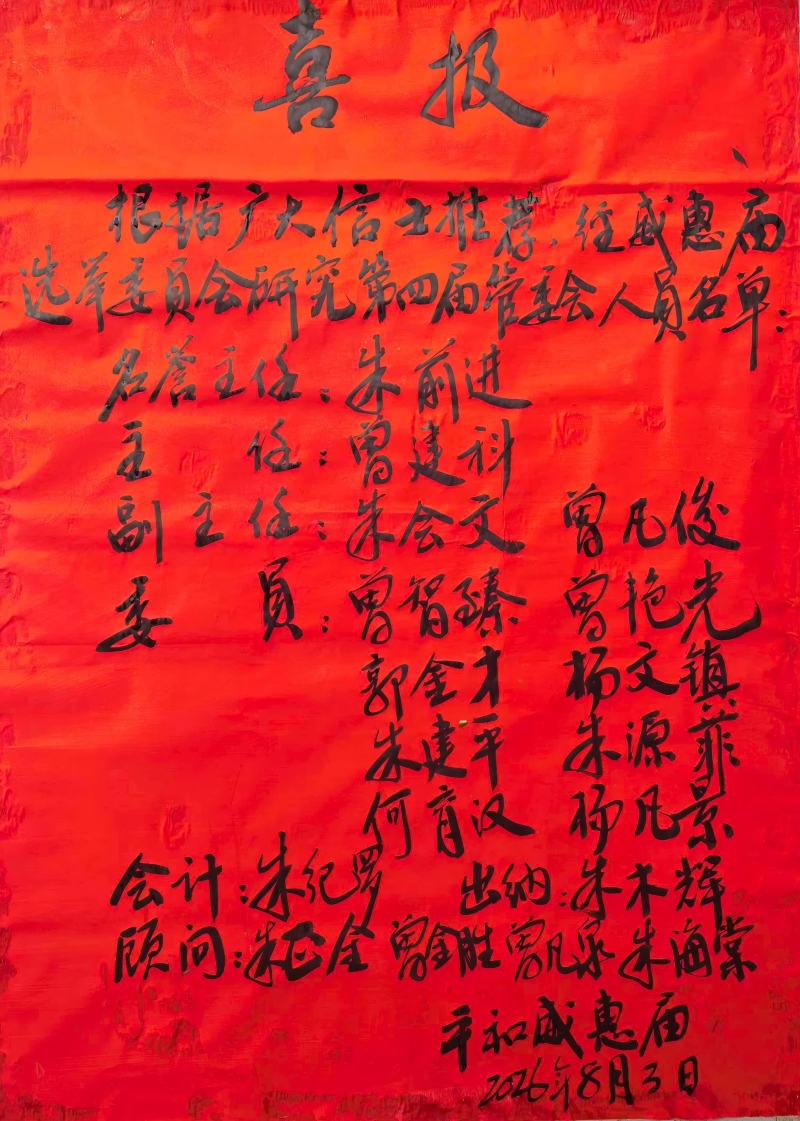 喜报
根据广大信士推荐、经威惠庙
选举委员会研究第四届管委会人员名单:
名誉主任:朱前进
主任:曾建科
副主任:朱会文 曾凡俊
委员:曾智臻 曾艳光
郭金才 杨文镇
朱建平 朱源菲
何育汉 杨凡景
会计:朱纪罗 出纳:朱木辉
顾问:朱正全 曾金胜 曾凡泉 朱海棠
平和威惠庙
2026年8月3日